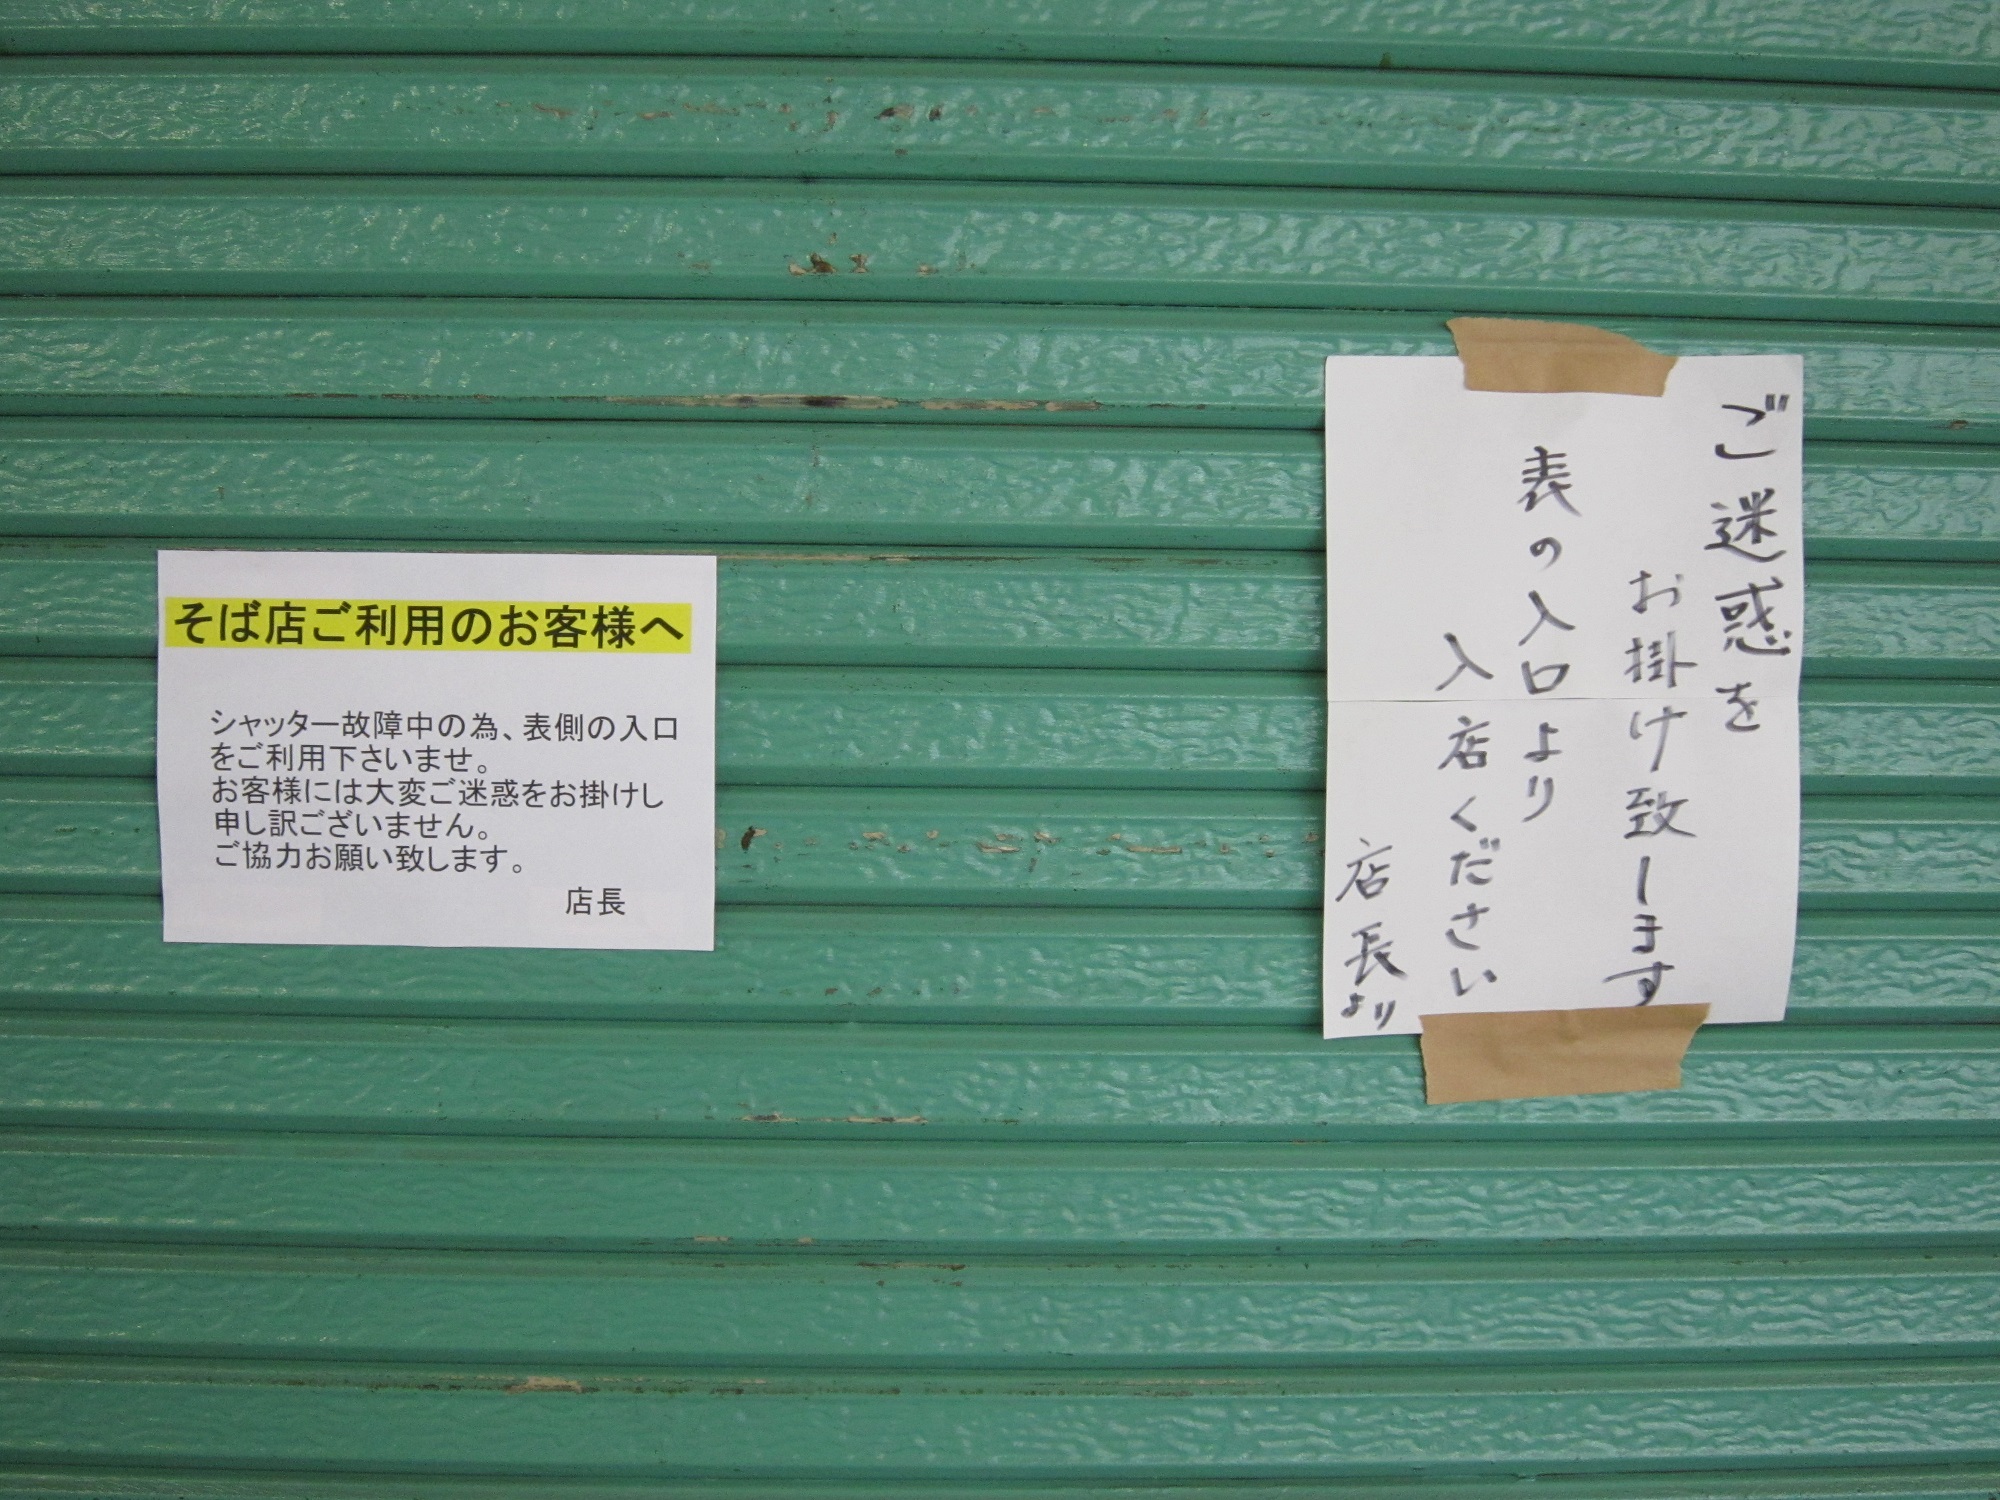 そば店ご利用のお客様へ
シャッター故障中の為、表側の入口
をご利用下さいませ。
お客様には大変ご迷惑をお掛けし
申し訳ございません。
ご協力お願い致します。
店長
ご迷惑を
お掛け致します
表の入口より
入店ください
店長より